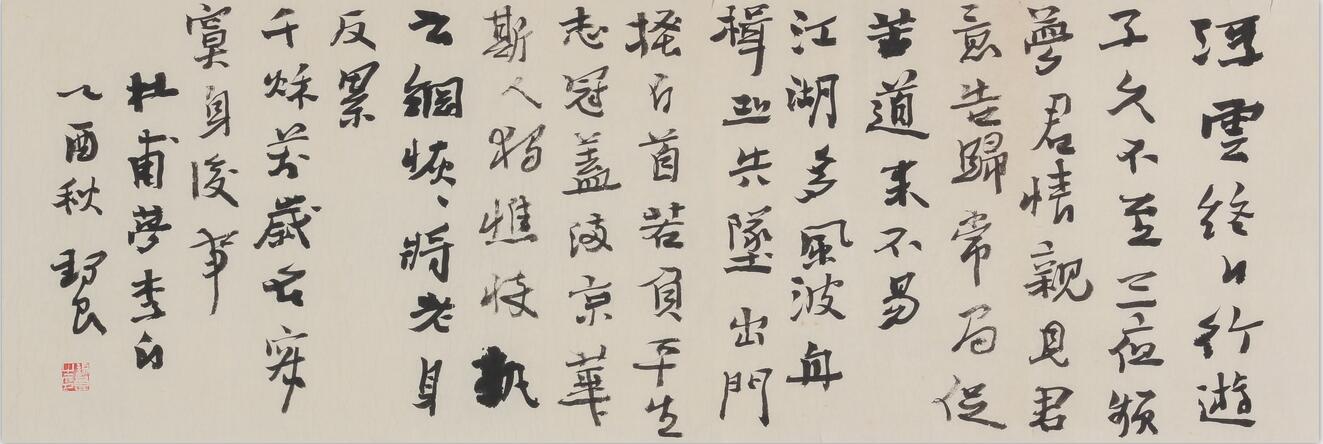 浮雲終日行遊
子久不至三夜頻
夢君情親見君
意告歸常局促
苦道来不易
江湖多風波舟
楫恐失墜出門
搔白首若負平生
志冠蓋滿京華
斯人獨憔悴孰
云網恢〻將老身
反累
千秌萬歲名寂
寞身後事
杜甫夢李白
乙酉秋